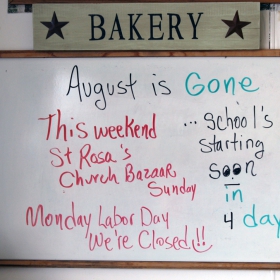 BAKERY
August is Gone
This weekend
St Rosa's
Church Bazaar
Sunday
Monday Labor Day
We're Closed!!
... School's
starting
soon
in
4 day